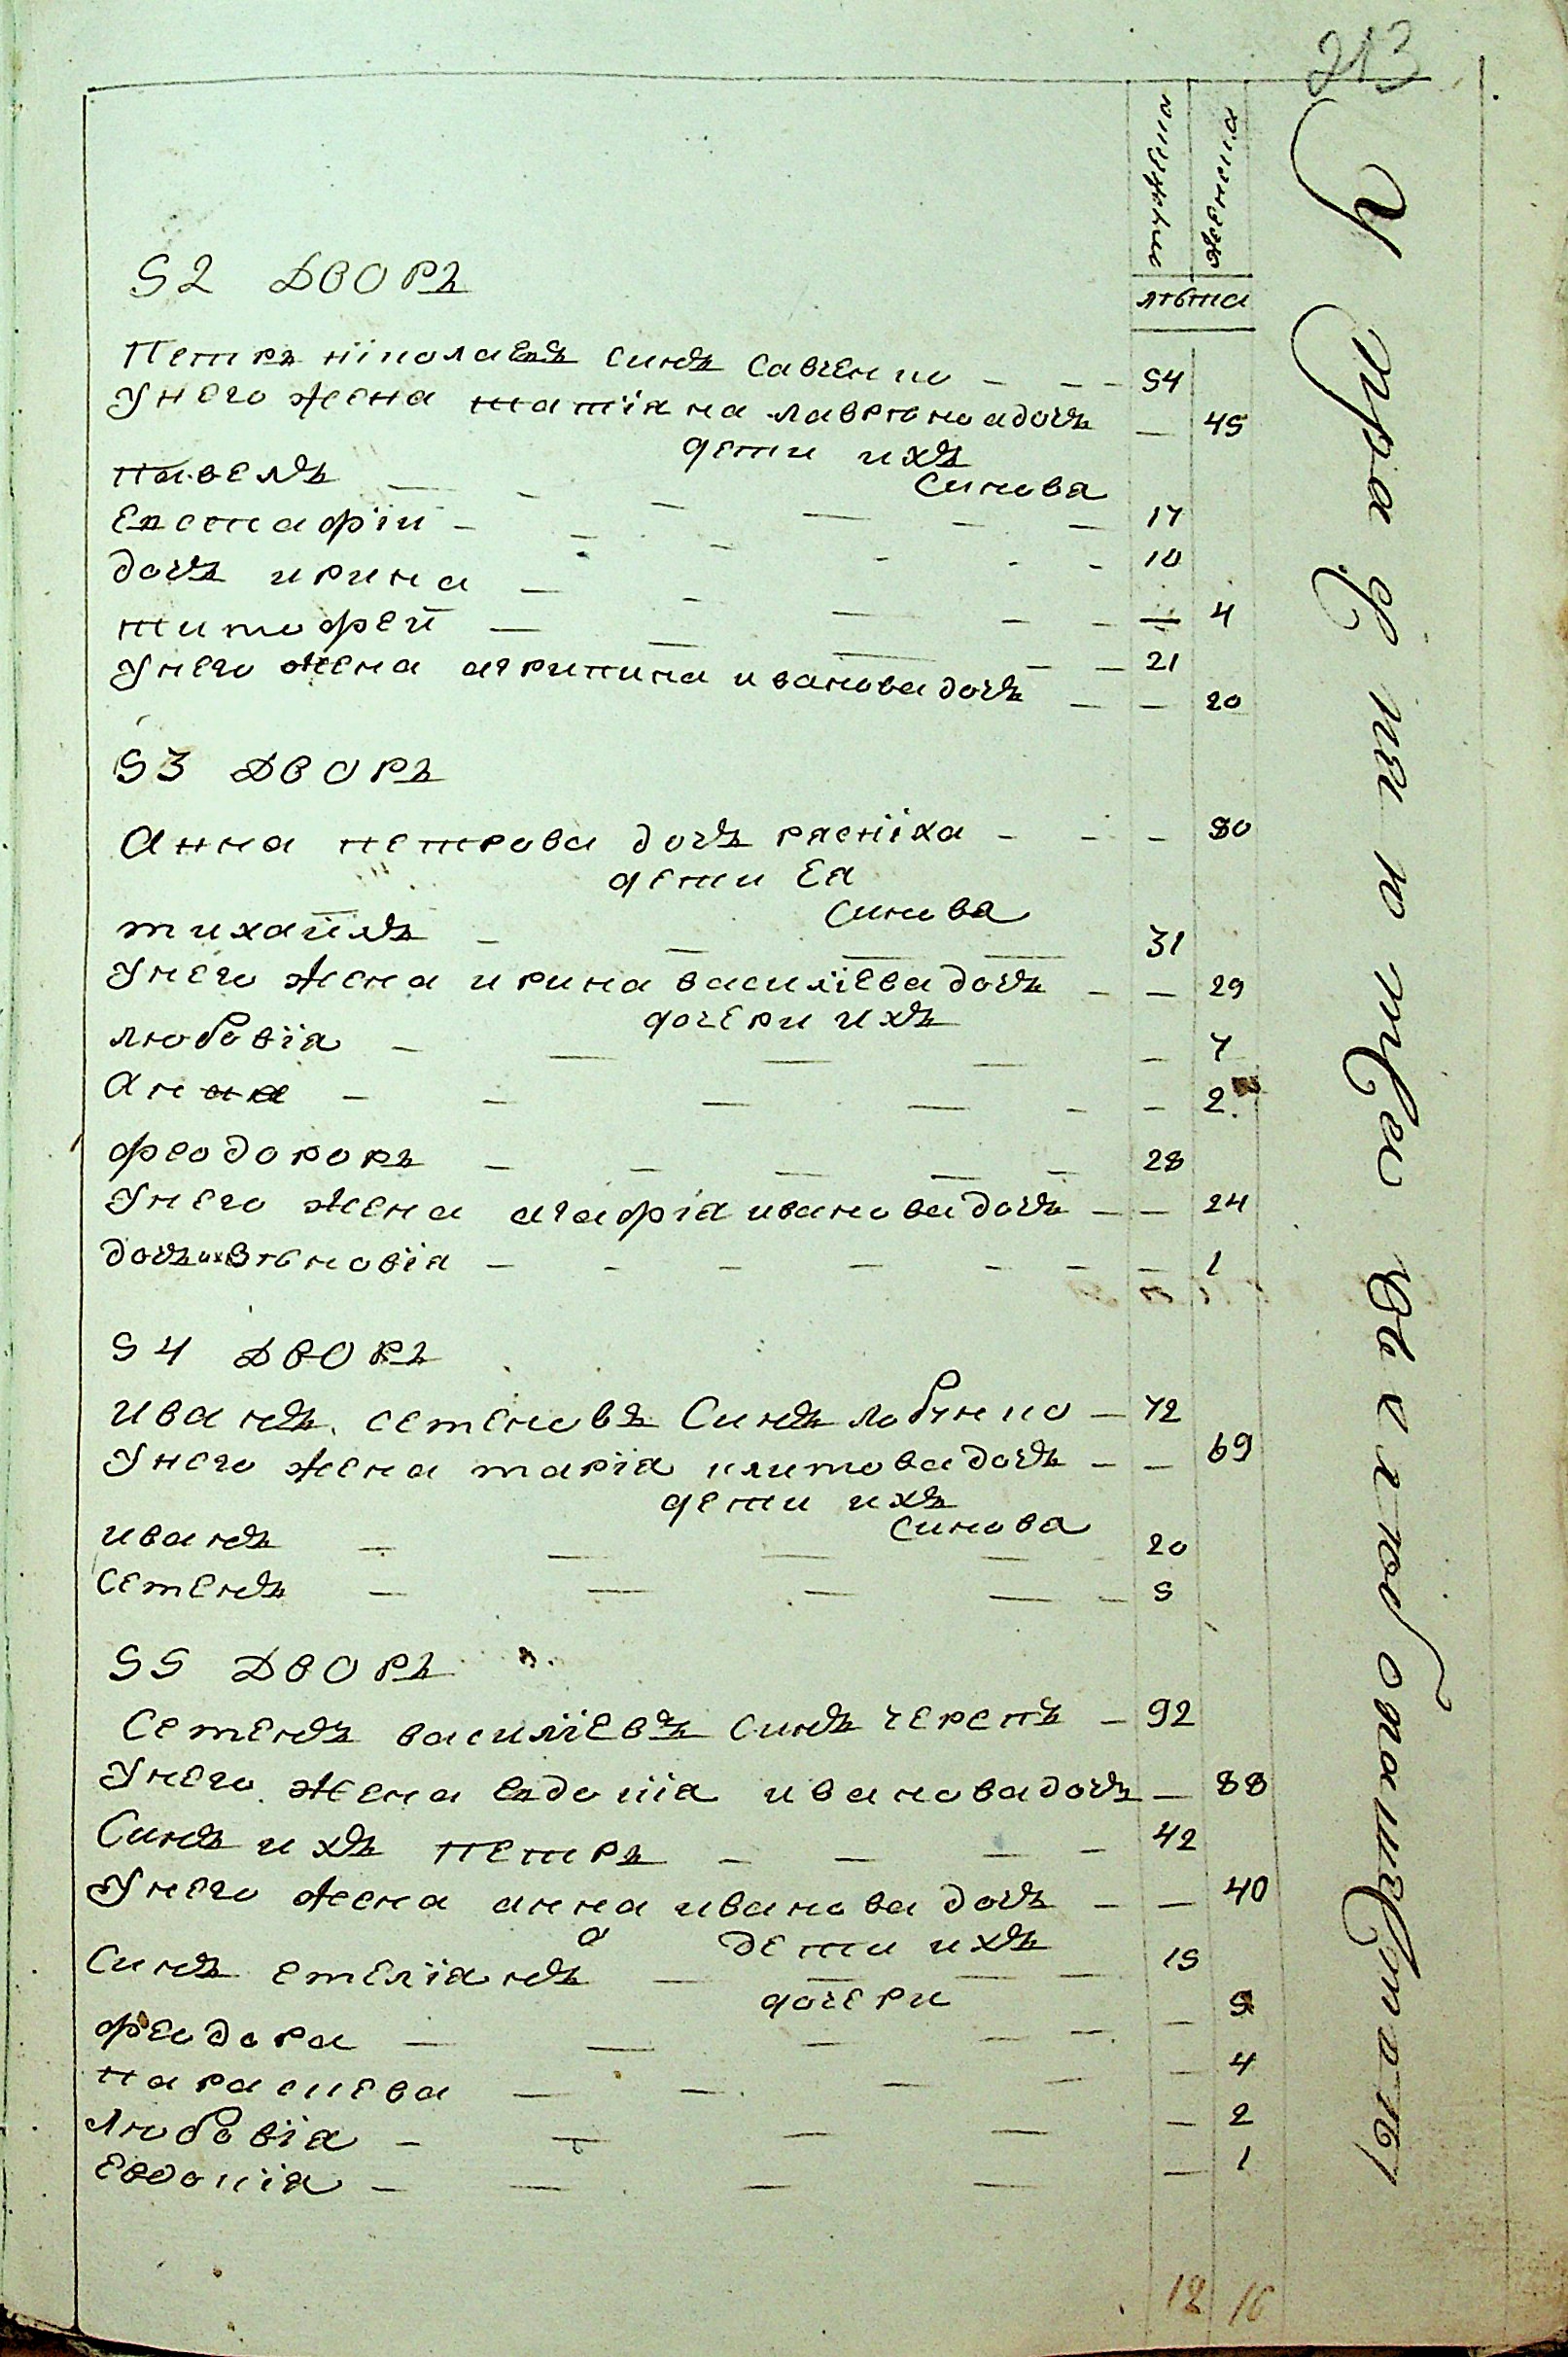 213
мужиска
женсиа
лѣта
52 ДВОРЪ
Петръ ніколаевъ синъ савченко — — — 54
Унего жена татіяна лаврѣновадочъ — 45
дети ихъ
синова
павелъ — — — — — — 17
Евстафіи — — — — — — 10
дочъ ирина — — — — — — 4
тимофей — — — — — 21
Унего жена агрипина ивановадочъ — — 20
53 ДВОРЪ
Анна петрова дочъ рясніха — — — 80
дети Ея
синова
михайлъ — — — — 31
Унего жена ирина василіевадочъ — — 29
дочери ихъ
любовія — — — — — 7
Анна — — — — — — 2.
феодоровъ — — — — — 28
Унего жена агафія ивановадочъ — — 24
дочъихъ Зѣновія — — — — — — — 1
54 ДВОРЪ
иванъ. семеновъ Синъ лобунко — 72
Унего жена марія климовадочъ — — 69
дети ихъ
синова
иванъ — — — — 20
семенъ — — — — — 5
55 ДВОРЪ
Семенъ василіевъ синъ черепъ — 92
Унего. жена Евдокія ивановадочъ — 88
Синъ ихъ петръ — — — — 42
Унего жена анна иванова дочъ — — 40
дети ихъ
Синъ емеліанъ — — — — 15
дочери
феодора — — — — — — 9
параскева — — — — — 4
Любовія — — — — — 2
Евдокія — — — — — 1
12 16